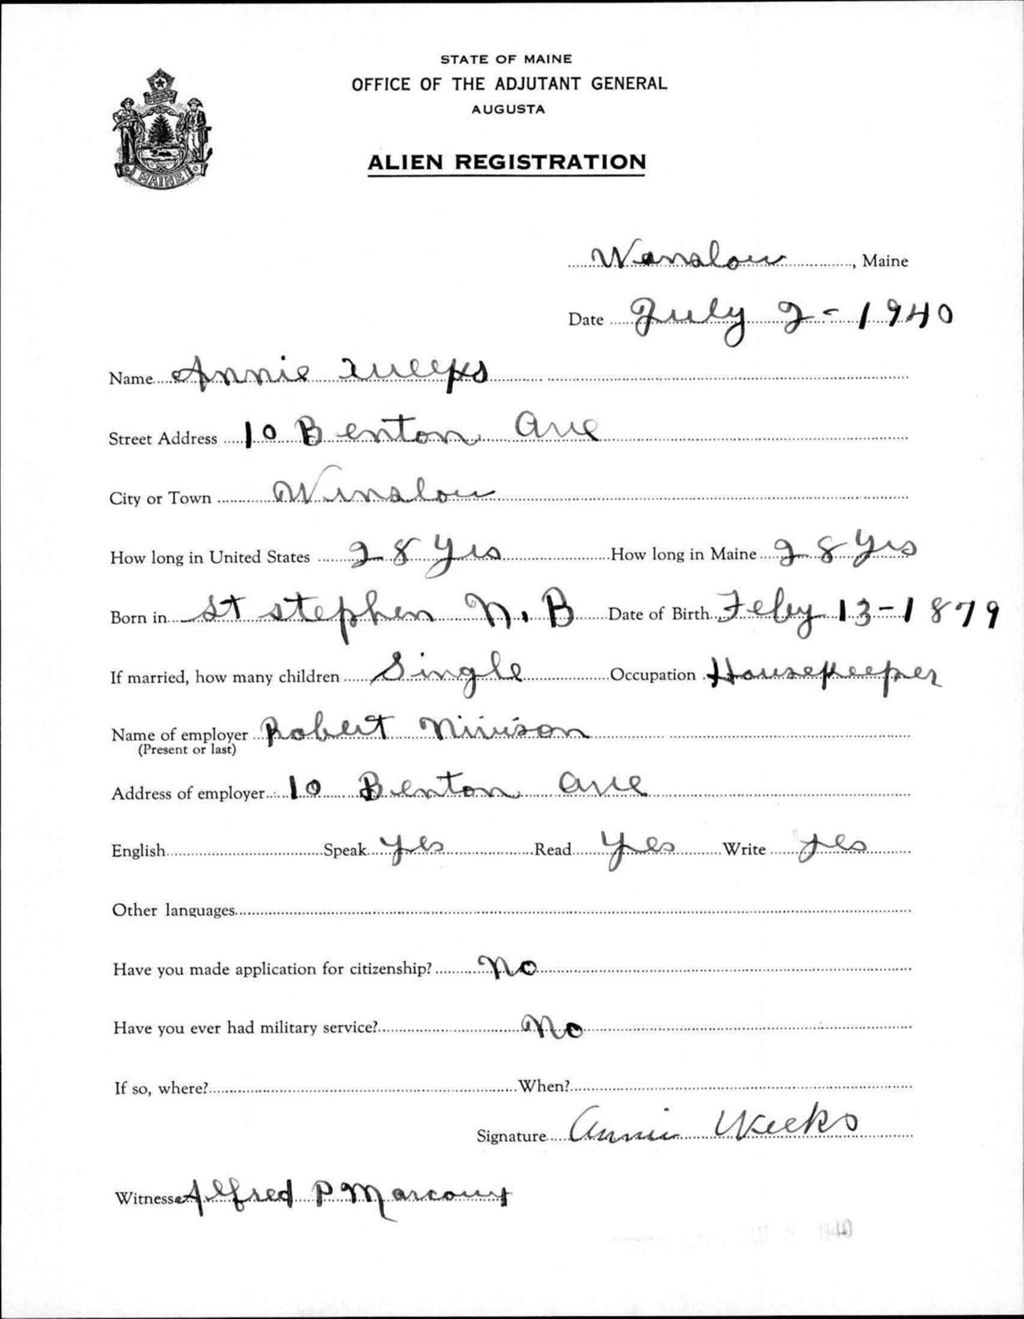 STATE OF MAINE
OFFICE OF THE ADJUTANT GENERAL
AUGUSTA
MAINE
ALIEN REGISTRATION
Winslow, Maine
Date July 2-1940
Name Annie Weeks
Street Address 10 Benton Ave
City or Town Winslow
How long in United States 28 Yrs How long in Maine 28 Yrs
Born in St Stephen N.B Date of Birth Feby 13-1879
If married, how many children Single Occupation Housekeeper
Name of employer Robert Nivison
(Present or last)
Address of employer 10 Benton Ave
English Speak Yes Read Yes Write Yes
Other languages
Have you made application for citizenship? No
Have you ever had military service? No
If so, where? When?
Signature Annie Weeks
Witness Alfred P Marcoux